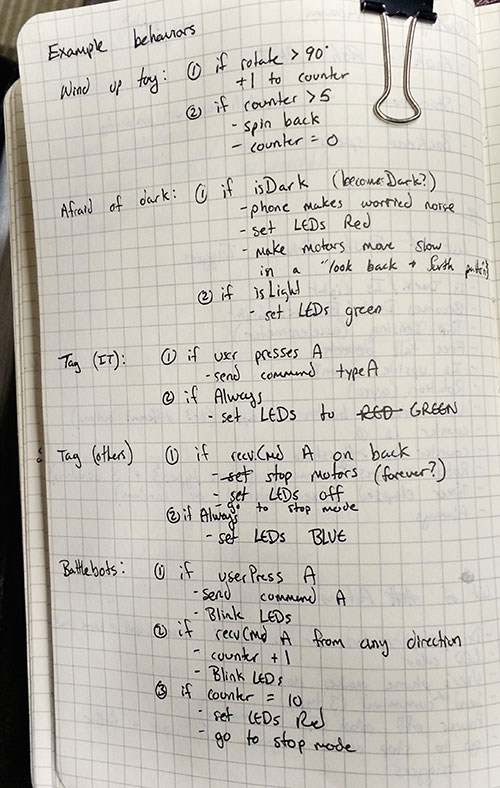 Example behaviors
Wind up toy: ① if rotate > 90°
+1 to counter
② if counter > 5
- spin back
- counter = 0
Afraid of dark: ① if isDark (becomeDark?)
- phone makes worried noise
- set LEDs Red
- make motors move slow
in a "look back + forth pattern"
② if isLight
- set LEDs green
Tag (IT): ① if user presses A
- send command typeA
② if Always
- set LEDs to RED GREEN
Tag (others) ① if recv.Cmd A on back
- set stop motors (forever?)
- set LEDs off
- go to stop mode
② if Always
- set LEDs BLUE
Battlebots: ① if userPress A
- send command A
- Blink LEDs
② if recvCmd A from any direction
- counter +1
- Blink LEDs
③ if counter = 10
- set LEDs Red
- go to stop mode